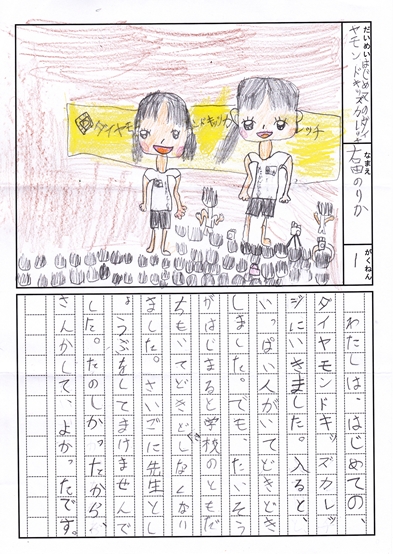 だいめい
はじめてのダイ
ヤモンドキッズカレッジ
なまえ
右田のりか
がくねん
1
ダイヤモンドキッズカレッチ
わたしは、はじめての、
ダイヤモンドキッズカレッ
ジにいきました。入ると、
いっぱい人がいてどきどき
しました。でも、たいそう
がはじまると学校のともだ
ちもいてどきどしなくなり
ました。さいごに先生とし
ょうぶをしてまけませんで
した。たのしかったから、
さんかして、よかったです。